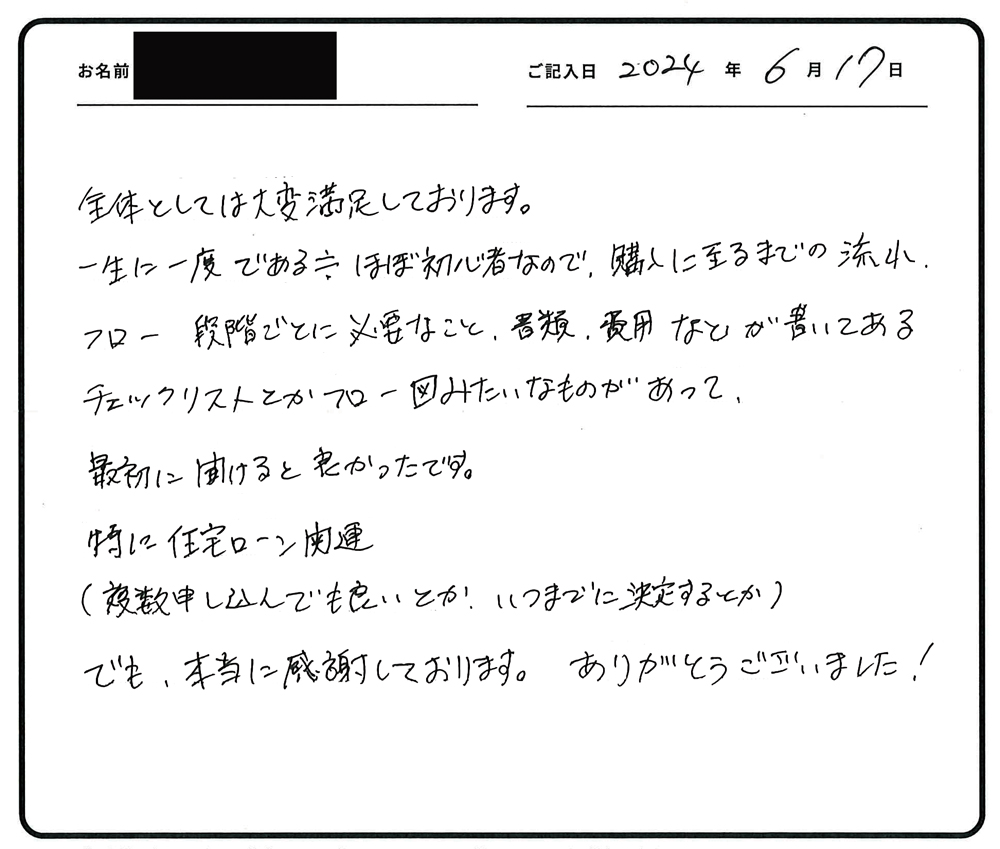 お名前 ご記入日 2024 年 6 月 17 日
全体としては大変満足しております。
一生に一度である≒ほぼ初心者なので、購入に至るまでの流れ、
フロー 段階ごとに必要なこと、書類、費用などが書いてある
チェックリストとかフロー図みたいなものがあって、
最初に聞けると良かったです。
特に住宅ローン関連
(複数申し込んでも良いとか、いつまでに決定するとか)
でも、本当に感謝しております。 ありがとうございました!